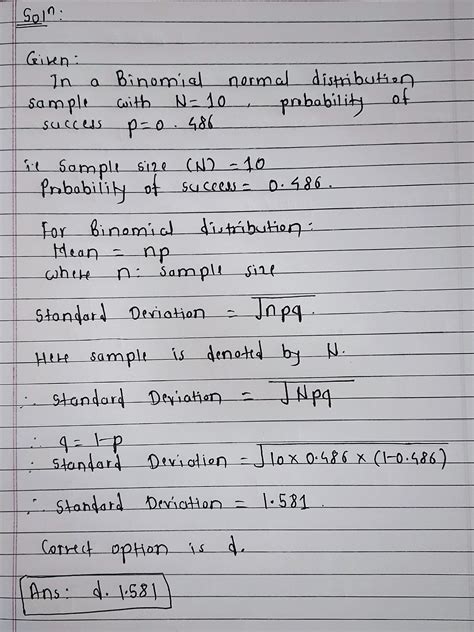 Solⁿ:
Given:
In a Binomial normal distribution
sample with N=10 , probability of
success p=0.486
i.e Sample size (N) = 10
Probability of success = 0.486.
For Binomial distribution:
Mean = np
where n: sample size
Standard Deviation = √npq.
Here sample is denoted by N.
∴ Standard Deviation = √Npq
∴ q = 1-p
∴ Standard Deviation = √10 x 0.486 x (1-0.486)
∴ Standard Deviation = 1.581.
Correct option is d.
Ans: d. 1.581